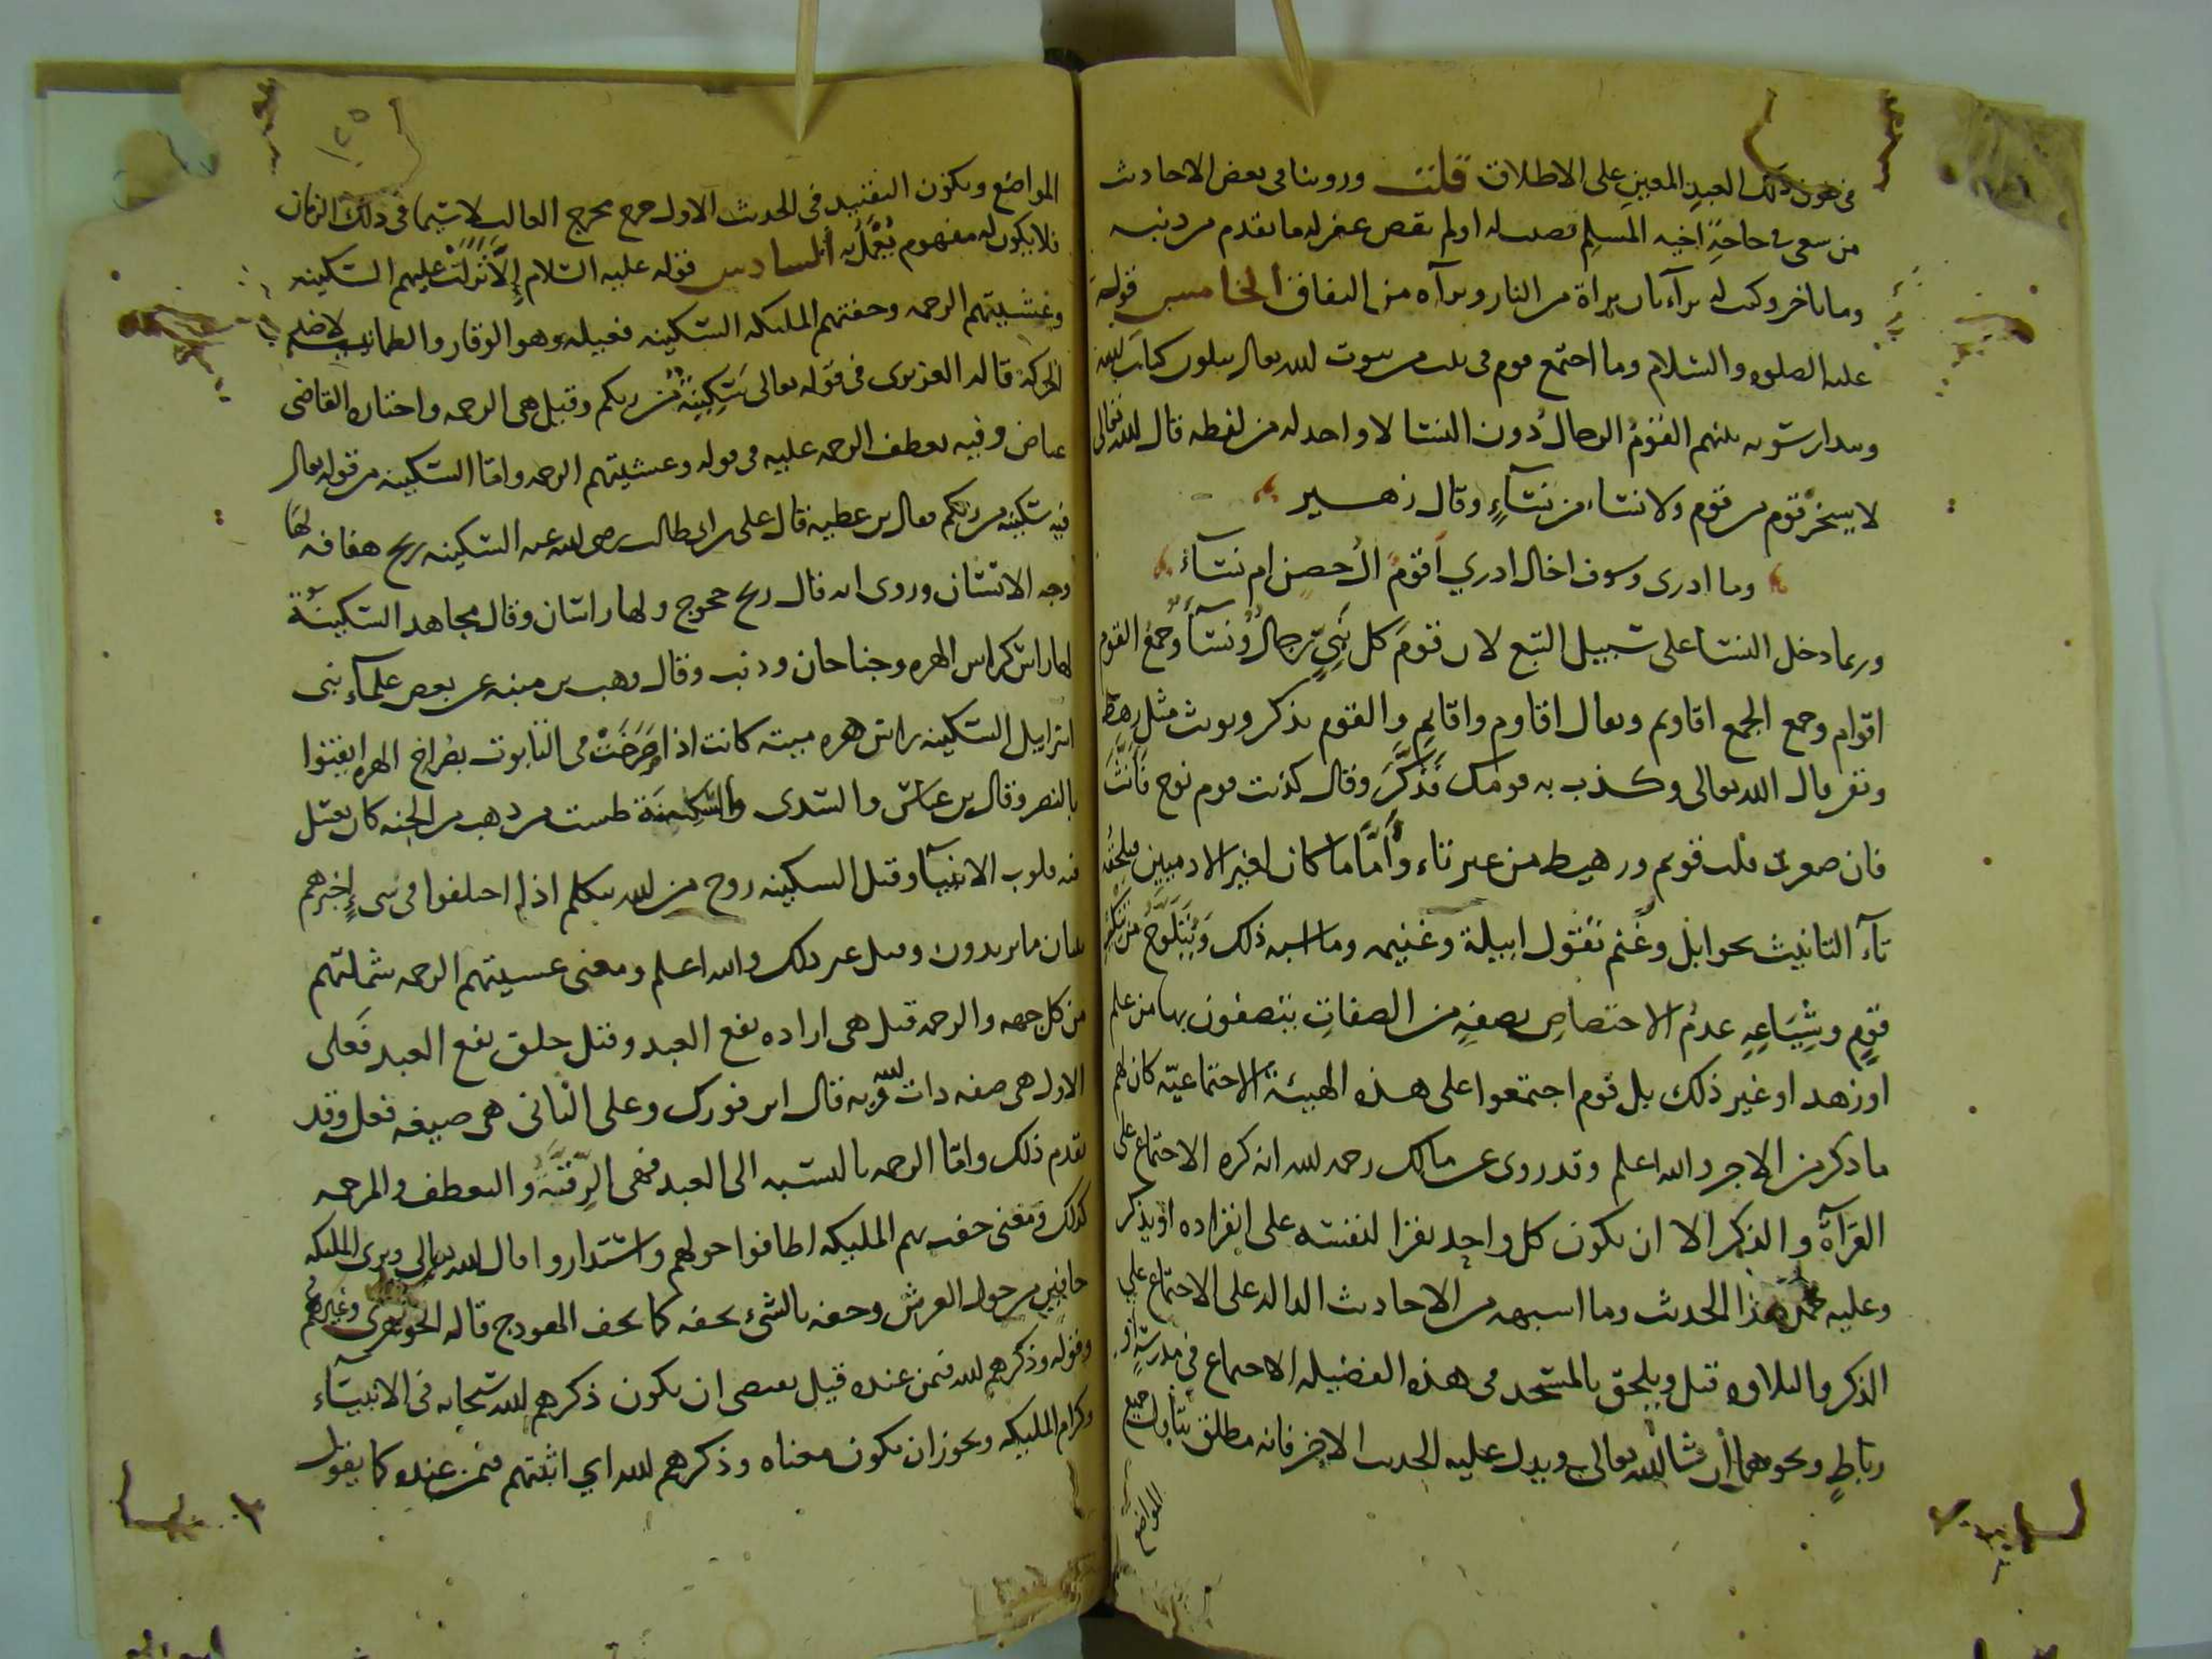 في عون ذلك العبد المعين على الاطلاق قلت وروينا في بعض الاحاديث
من سعى في حاجة اخيه المسلم قضيت له او لم تقض غفر له ما تقدم من ذنبه
وما تاخر وكتب له براءتان براة من النار وبراه من النفاق الخامس قوله
عليه الصلوه والسلام وما اجتمع قوم في بيت من بيوت الله تعالى يتلون كتاب الله
ويتدارسونه بينهم القوم الرجال دون النسا لا واحد له من لفظه قال الله تعالى
لا يسخر قوم من قوم ولا نساء من نساء وقال زهير
وما ادرى وسوف اخال ادري اقوم ال حصن ام نساء
وربما دخل النسا على سبيل التبع لان قوم كل نبي رجال ونساء وجمع القوم
اقوام وجمع الجمع اقاوم ويقال اقاوم واقايم والقوم يذكر ويونث مثل رهط
ونفر قال الله تعالى وكذب به قومك فذكر وقال كذبت قوم نوح فانث
فان صغرت قلت قويم ورهيط من غير تاء واما ما كان لغير الادميين فيلحقه
تاء التانيث نحو ابل وغنم تقول ابيلة وغنيمه وما اشبه ذلك ويتلوح من تنكير
قوم وشياعه عدم الاختصاص بصفه من الصفات يتصفون بها من علم
او زهد او غير ذلك بل قوم اجتمعوا على هذه الهيئة الاجتماعيه كان لهم
ما ذكر من الاجر والله اعلم وقد روى عن مالك رحمه الله انه كره الاجتماع على
القرآة والذكر الا ان يكون كل واحد يقرا لنفسه على انفراده او يذكر
وعليه هذا الحديث وما اشبهه من الاحاديث الداله على الاجتماع على
الذكر والتلاوه قيل ويلحق بالمسجد في هذه الفضيله الاجتماع في مدرسة او
رباط ونحوهما ان شا الله تعالى ويدل عليه الحديث الاخر فانه مطلق يتناول جميع
المواضع
١٢٥
المواضع ويكون التقييد في الحديث الاول خرج مخرج الغالب لا سيما في ذلك الزمان
فلا يكون له مفهوم يعمل به السادس قوله عليه السلام إلا نزلت عليهم السكينه
وغشيتهم الرحمه وحفتهم المليكه السكينه فعيله وهو الوقار والطمانينه لاصله
الحركة قاله العزيزى في قوله تعالى سكينة من ربكم وقيل هي الرحمه واختاره القاضى
عياض وفيه لعطف الرحمه عليه في قوله وغشيتهم الرحمه واما السكينه من قوله تعالى
فيه سكينه من ربكم فقال بن عطيه قال على بن ابي طالب رضى الله عنه السكينه ريح هفافه لها
وجه الانسان وروى انه قال ريح خجوج ولها راسان وقال مجاهد السكينة
لها راس كراس الهره وجناحان وذنب وقال وهب بن منبه عن بعض علماء بنى
اسرايل السكينه راس هره ميته كانت اذا صرخت في التابوت بصراخ الهر ايقنوا
بالنصر وقال بن عباس والسدى والسكينة طست من ذهب من الجنه كان يغسل
فيه قلوب الانبياء وقيل السكينه روح من الله يتكلم اذا اختلفوا في شيء إخبرهم
ببيان ما يريدون وقيل غير ذلك والله اعلم ومعنى غشيتهم الرحمه شملتهم
من كل جهه والرحمه قيل هي اراده نفع العبد وقيل خلق نفع العبد فعلى
الاول هي صفه ذات لله وبه قال ابن فورك وعلى الثانى هي صيغه فعل وقد
تقدم ذلك واما الرحمه بالنسبه الى العبد فهي الرقة والتعطف والمرحمه
كذلك ومعنى حفت بهم المليكه اطافوا حولهم واستداروا قال الله تعالى وترى المليكه
حافين من حول العرش وحفه بالشىء يحفه كما يحف الهودج قاله الجوهرى وغيره
وقوله وذكرهم الله فيمن عنده قيل يقتضى ان يكون ذكرهم الله سبحانه في الانبياء
وكرام المليكه ويجوز ان يكون معناه وذكرهم الله اي اثبتهم فيمن عنده كما يقول